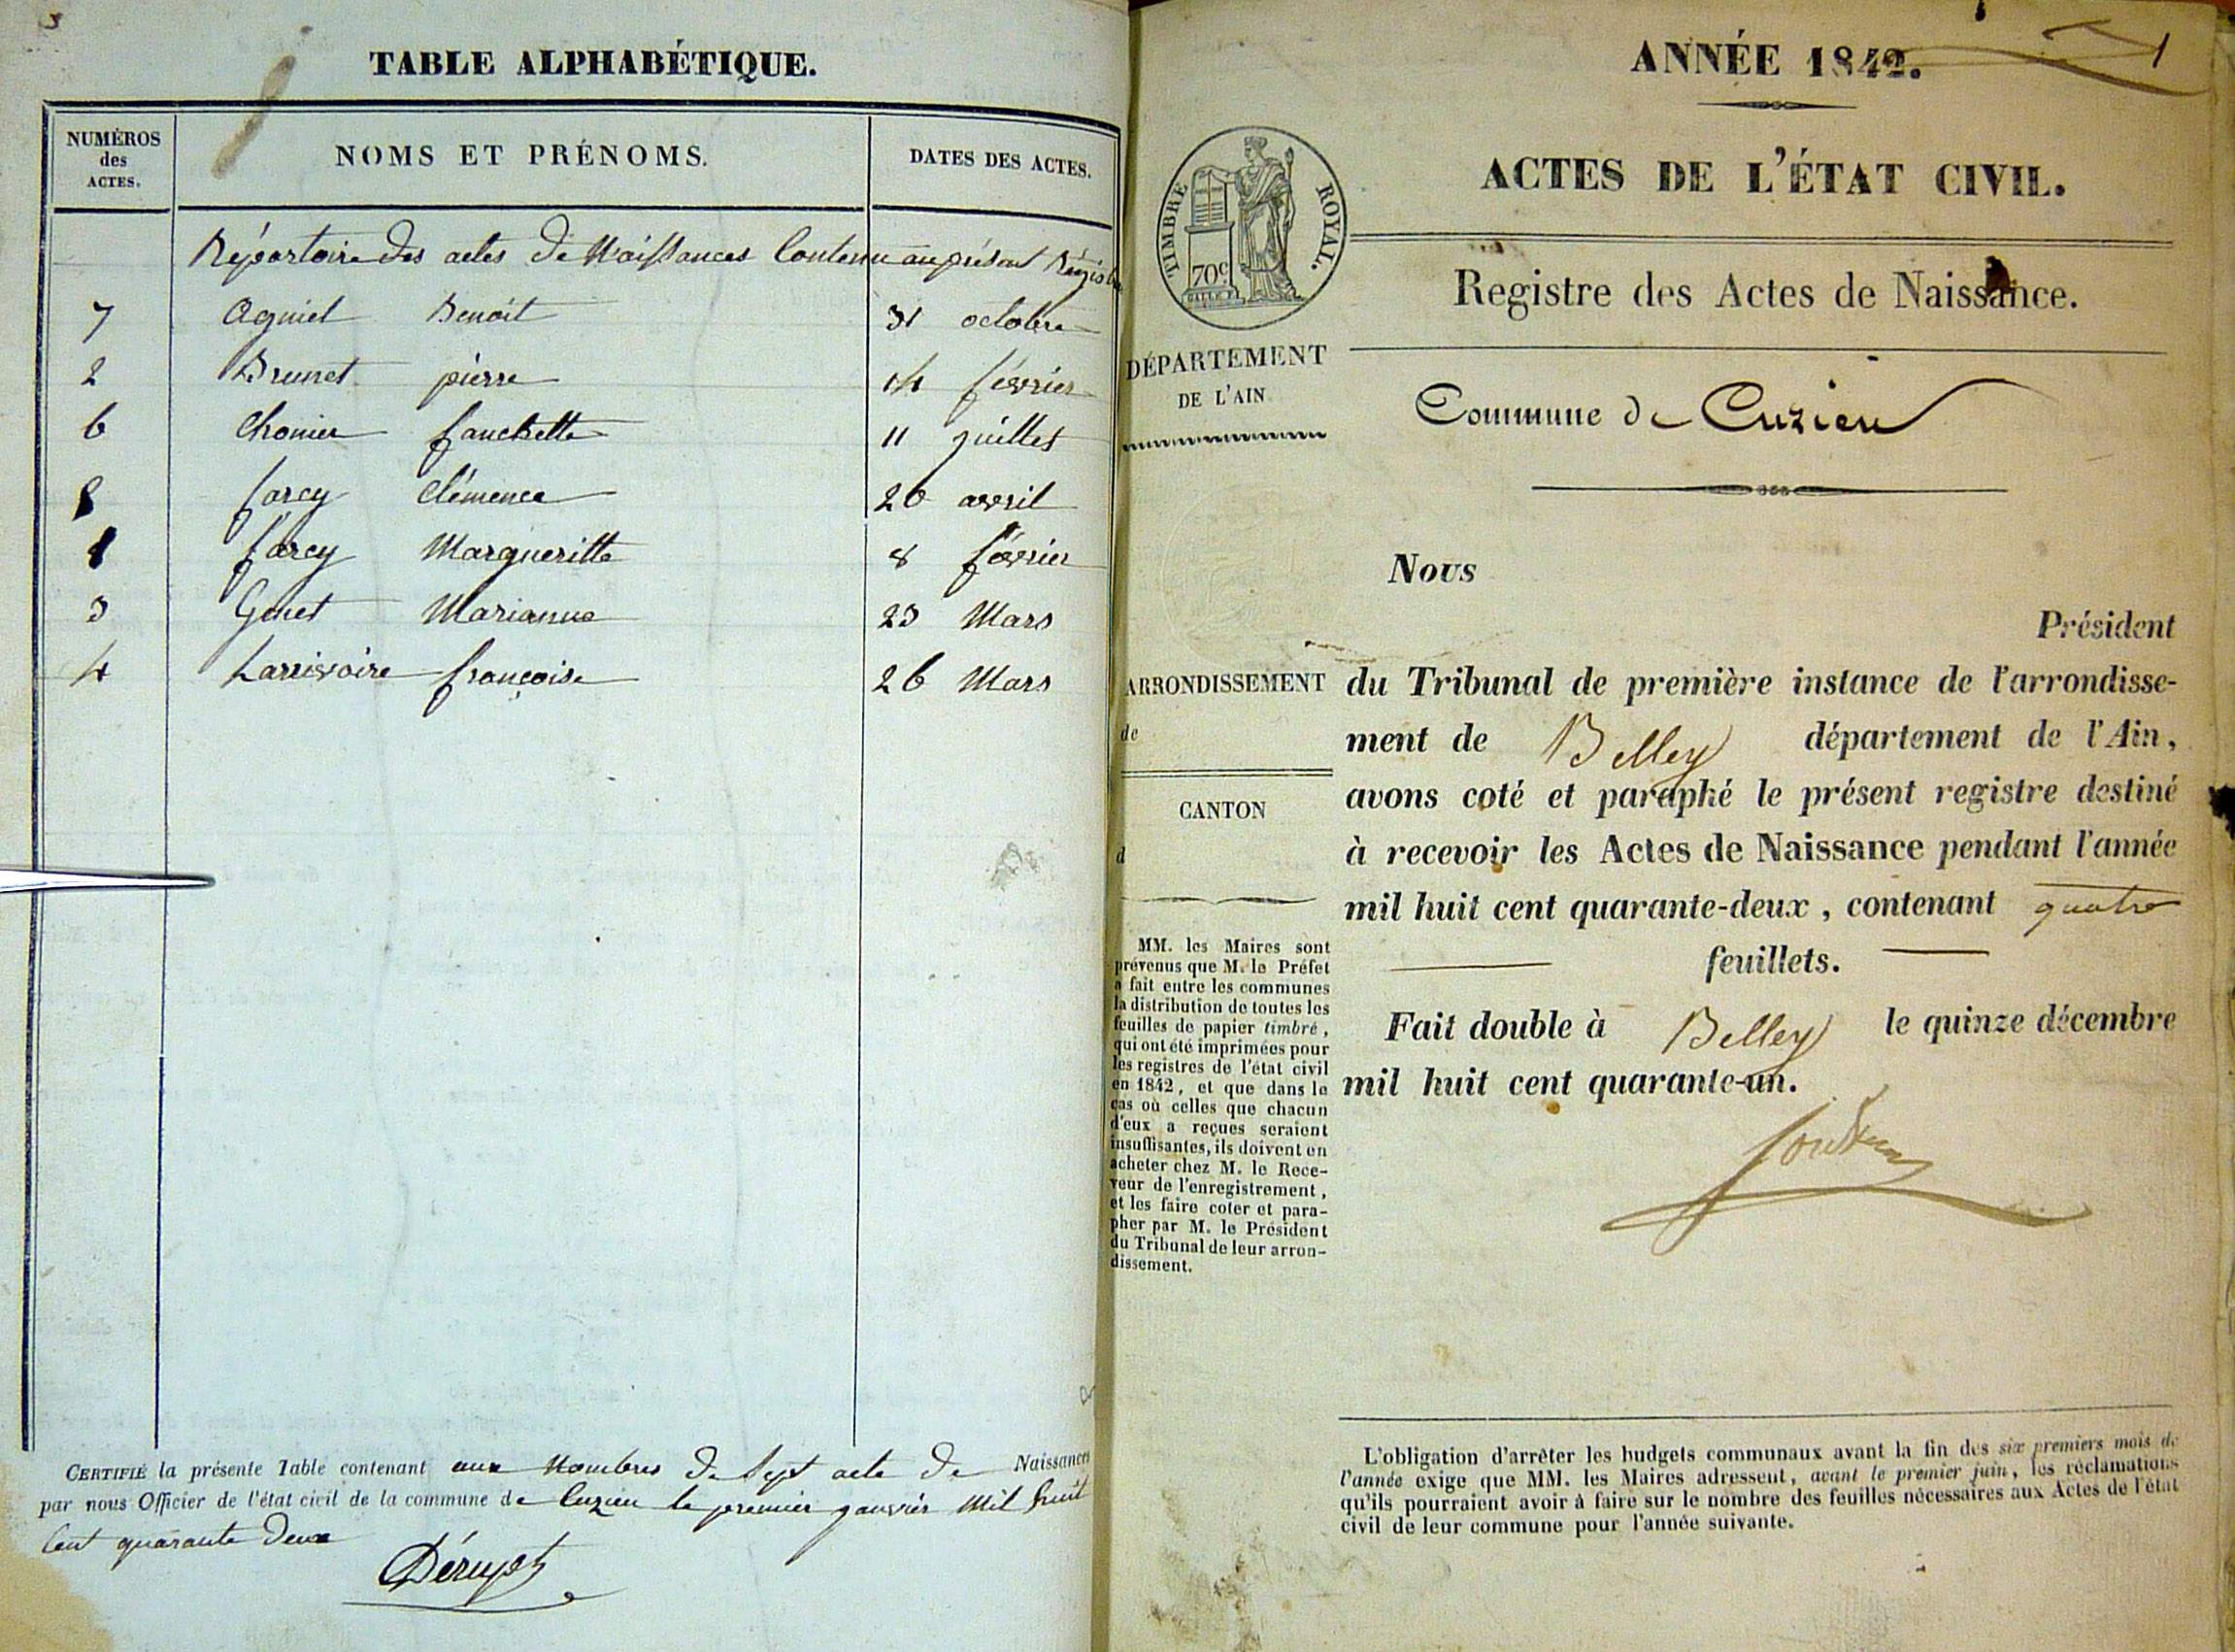 TABLE ALPHABÉTIQUE.
NUMÉROS des ACTES. NOMS ET PRÉNOMS. DATES DES ACTES.
Répertoire des actes de Naissances Contenu au présent Régistre
7 Agniel Benoit 31 octobre
2 Brunet pierre 14 février
6 Chonier fanchette 11 juillet
5 farcy Clémence 20 avril
1 farcy Margueritte 8 février
3 Genet Marianne 23 Mars
4 Larrivoire françoise 26 Mars
CERTIFIÉ la présente Table contenant aux Nombres de Sept acte de Naissances
par nous Officier de l'état civil de la commune de Cuzieu le premier janvier Mil huit
Cent quarante Deux
ANNÉE 1842.
1
ACTES DE L'ÉTAT CIVIL.
TIMBRE ROYAL.
70c.
Registre des Actes de Naissance.
DÉPARTEMENT
DE L'AIN
Commune de Cuzieu
Nous
Président
ARRONDISSEMENT
de
CANTON
d
du Tribunal de première instance de l'arrondisse-
ment de Belley département de l'Ain,
avons coté et paraphé le présent registre destiné
à recevoir les Actes de Naissance pendant l'année
mil huit cent quarante-deux, contenant quatre
feuillets.
Fait double à Belley le quinze décembre
mil huit cent quarante-un.
MM. les Maires sont
prévenus que M. le Préfet
a fait entre les communes
la distribution de toutes les
feuilles de papier timbré,
qui ont été imprimées pour
les registres de l'état civil
en 1842, et que dans le
cas où celles que chacun
d'eux a reçues seraient
insuffisantes, ils doivent en
acheter chez M. le Rece-
veur de l'enregistrement,
et les faire coter et para-
pher par M. le Président
du Tribunal de leur arron-
dissement.
L'obligation d'arrêter les budgets communaux avant la fin des six premiers mois de
l'année exige que MM. les Maires adressent, avant le premier juin, les réclamations
qu'ils pourraient avoir à faire sur le nombre des feuilles nécessaires aux Actes de l'état
civil de leur commune pour l'année suivante.